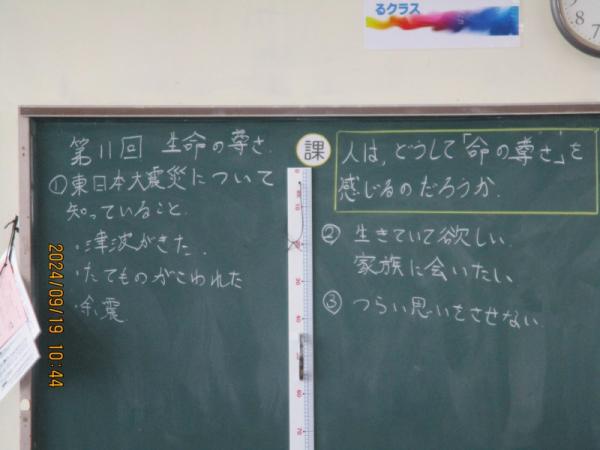 るクラス
第11回 生命の尊さ
①東日本大震災について
知っていること
・津波がきた
・たてものがこわれた
・余震
課
人は、どうして「命の尊さ」を
感じるのだろうか。
② 生きていて欲しい
家族に会いたい
③ つらい思いをさせない
2024/09/19 10:44